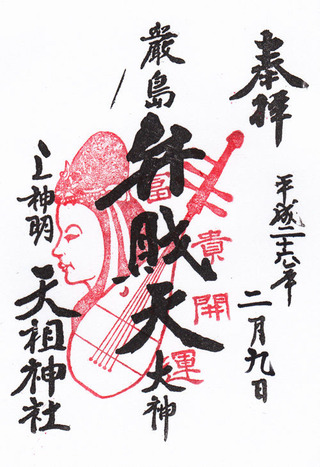 奉拝
平成二十六年
二月九日
厳島
弁財天
大神
富貴開運
上神明
天祖神社